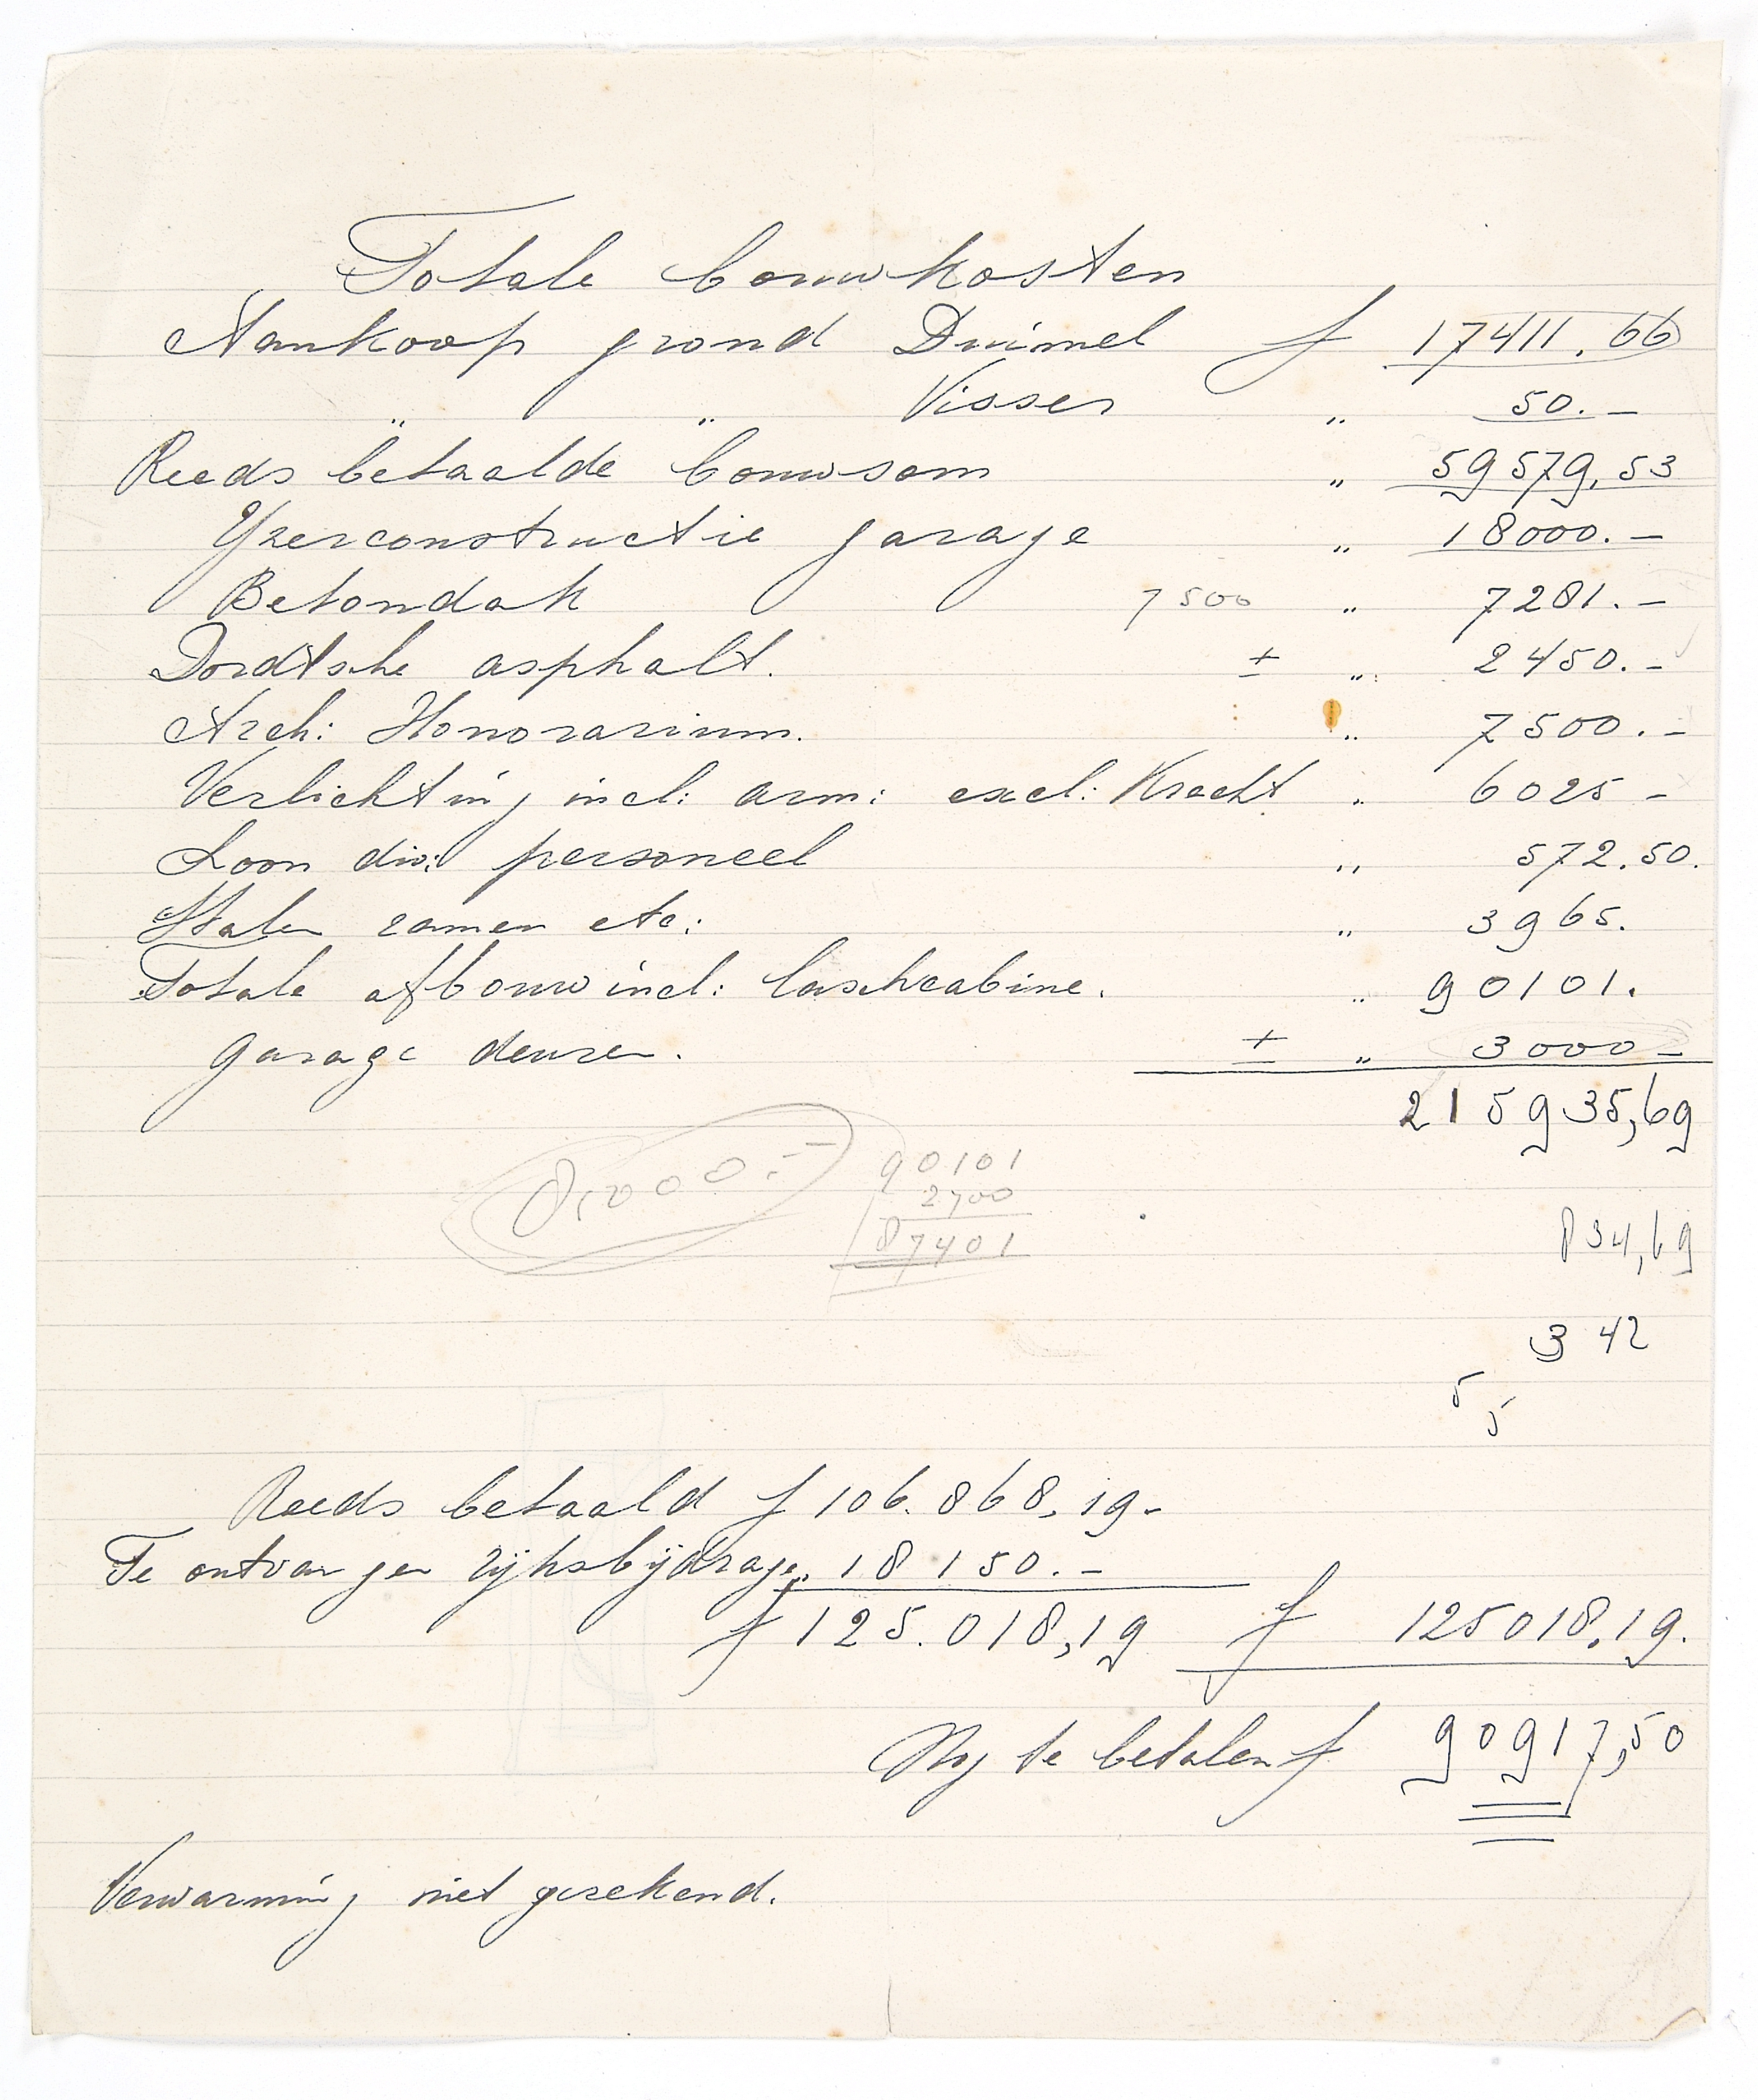 Totale bouwkosten
Aankoop grond Duimel f 17411.66
" " Visser " 50.-
Reeds betaalde bouwsom " 59579,53
Yzerconstructie garage " 18000.-
Betondak 7500 " 7281.-
Dordtsche asphalt. ± " 2450.-
Arch: Honorarium. " 7500.-
Verlichting incl: arm: excl: Kracht " 6025-
Loon div: personeel " 572.50.
Stalen ramen etc: " 3965.
Totale afbouw incl: laschcabine. " 90101.
garage deuren. ± " 3000-
215935,69
8,000.-
90101
2700
87401
834,69
342
5
5
Reeds betaald f 106.868,19-
Te ontvangen rijksbijdrage " 18150.-
f 125.018,19 f 125018,19.
Nog te betalen f 90917,50
Verwarming niet gerekend.